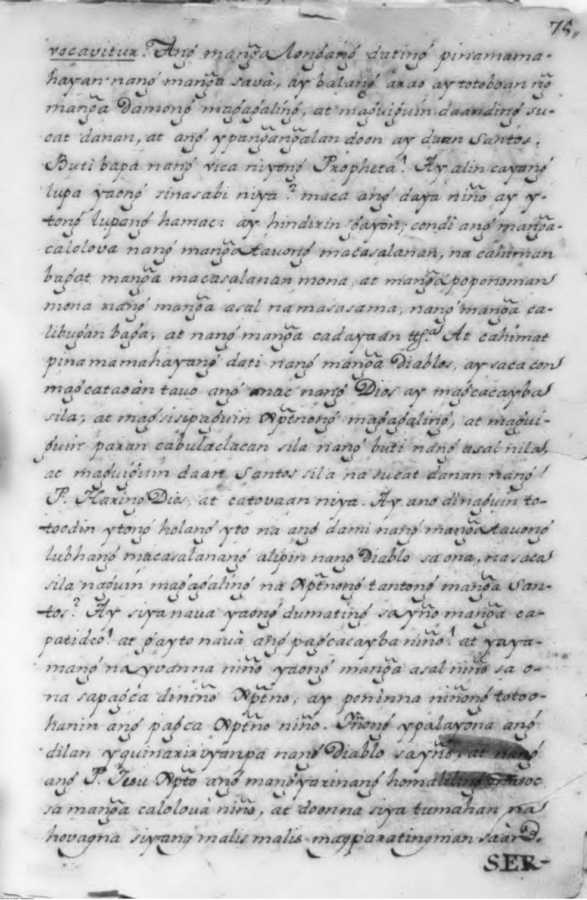 75,
vocavitur. Ang̃ mang̃a longang̃ dating̃ pinamama-
hayan nang̃ mang̃a sava, ay balang̃ arao ay totoboan nḡ
mang̃a Damong̃ magagaling̃, at maguiguin daanding̃ su-
cat danan, at ang̃ ypang̃ang̃alan doon ay daan Santos.
Buti bapa nang̃ vica niyong̃ Propheta! Ay alin cayang̃
lupa yaong̃ sinasabi niya? maca ang̃ daya niño ay y-
tong̃ lupang̃ hamac: ay hindirin gayòn; condi ang̃ mang̃a-
calolova nang̃ mang̃a tauong̃ macasalanan, na cahiman
bagat mang̃a macasalanan mona, at mang̃a poponoman
mona nang̃ mang̃a asal na masasama, nang̃ mang̃a ca-
libugan baga, at nang̃ mang̃a cadayaan At cahimat
pinamamahayang̃ dati nang̃ mang̃a Diablos, ay saca con
magcataoàn tauo ang̃ anac nang̃ Dios ay magcacayba
sila, at magsisipaguin Xp̃tnong̃ magagaling̃, at magui-
guin paran cabulaclacan sila nang̃ buti nang̃ asal nila,
at maguiguin daan Santos sila na sucat danan nang̃
P. Haring̃ Dios, at catovaan niya. Ay ano dinaguin to-
toodin ytong̃ holang̃ yto na ang̃ dami nang̃ mang̃a tauong̃
lubhang̃ macasalanang̃ alipin nang̃ Diablo sa ona, na saca
sila naguin magagaling̃ na Xp̃tnong̃ tantong̃ mang̃a San-
tos? Ay siya nava yaong̃ dumating̃ sa yño mang̃a ca-
patid có! at gayto navà ang̃ pagcacayba niño! at yaya-
mang̃ na yvanna niño yaong̃ mang̃a asal niño sa o-
na sa pagca di niño Xp̃tno, ay poninna niñong̃ totoo-
hanin ang̃ pagca Xp̃tno niño. Yñong̃ ypalayona ang̃
dilan yquinaririvyanpa nang̃ Diablo sa yño, at nang̃
ang̃ P. Jesu Xp̃to ang̃ mang̃yarinang̃ homaliling̃
sa mang̃a calolovà niño, at doon na siya tumahan na
hovagna siyang malis malis magparatingman saan D.
SER-